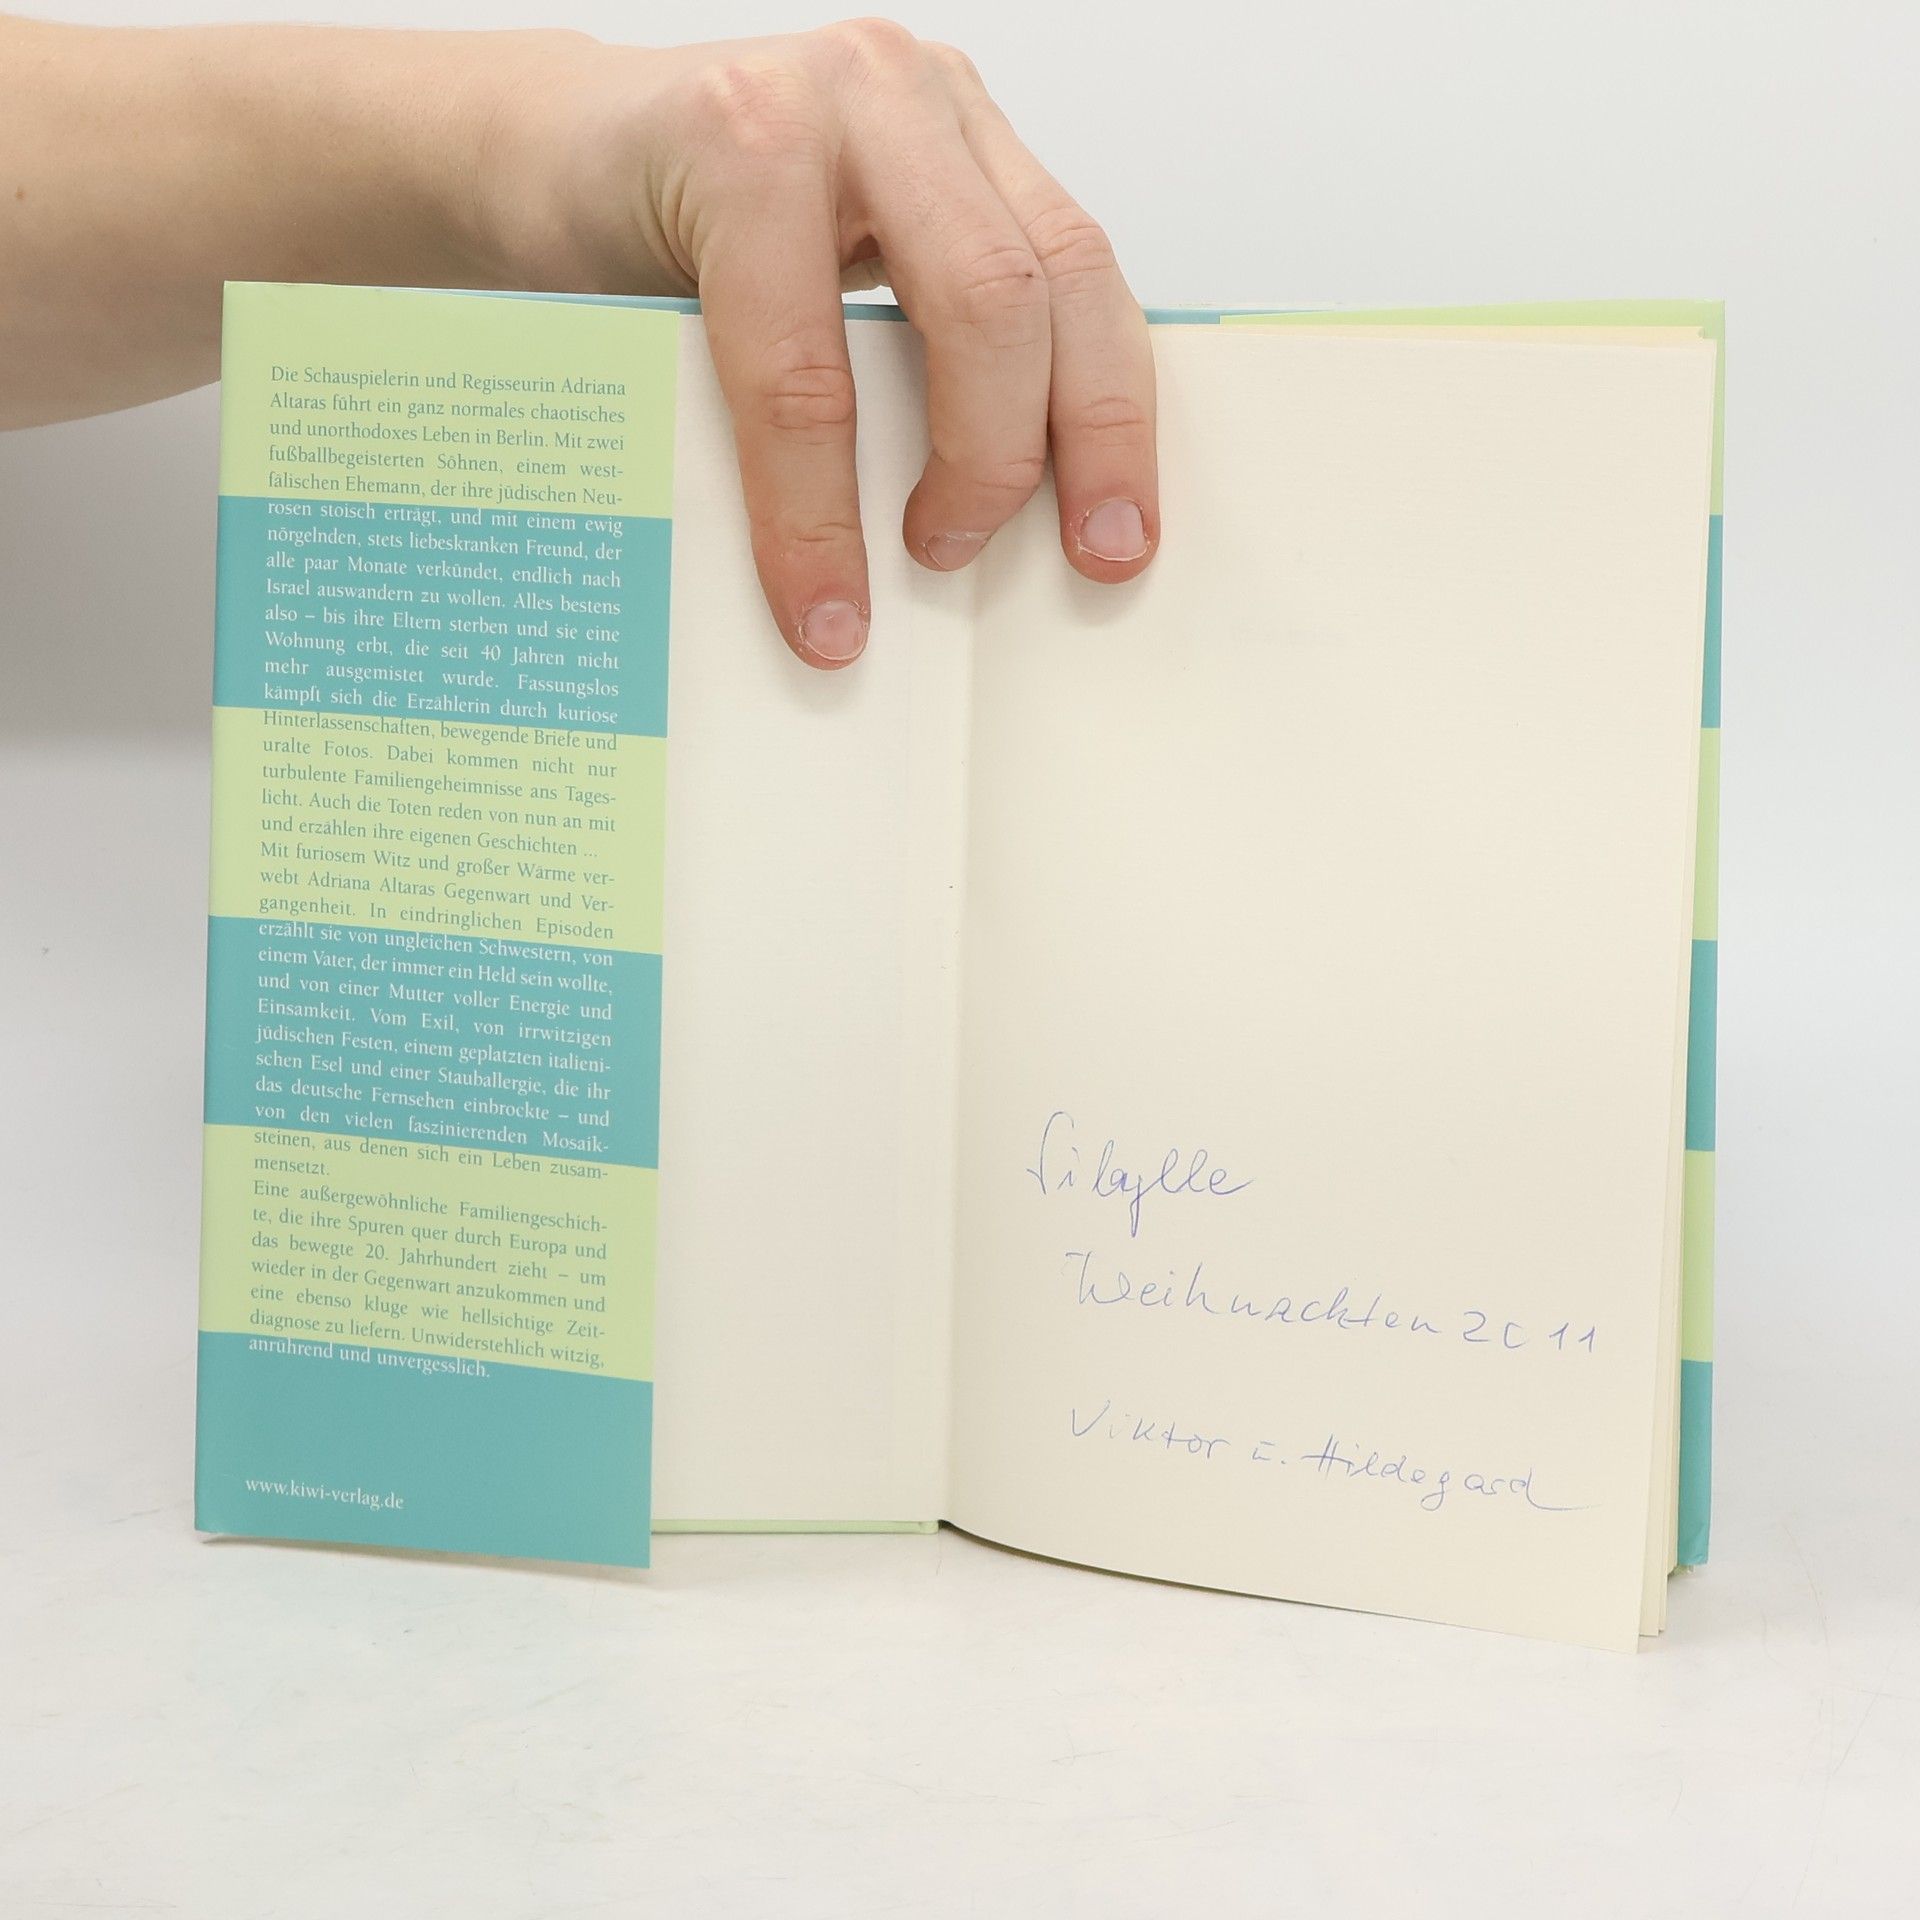 Die Schauspielerin und Regisseurin Adriana
Altaras führt ein ganz normales chaotisches
und unorthodoxes Leben in Berlin. Mit zwei
fußballbegeisterten Söhnen, einem west-
fälischen Ehemann, der ihre jüdischen Neu-
rosen stoisch erträgt, und mit einem ewig
nörgelnden, stets liebeskranken Freund, der
alle paar Monate verkündet, endlich nach
Israel auswandern zu wollen. Alles bestens
also – bis ihre Eltern sterben und sie eine
Wohnung erbt, die seit 40 Jahren nicht
mehr ausgemistet wurde. Fassungslos
kämpft sich die Erzählerin durch kuriose
Hinterlassenschaften, bewegende Briefe und
uralte Fotos. Dabei kommen nicht nur
turbulente Familiengeheimnisse ans Tages-
licht. Auch die Toten reden von nun an mit
und erzählen ihre eigenen Geschichten ...
Mit furiosem Witz und großer Wärme ver-
webt Adriana Altaras Gegenwart und Ver-
gangenheit. In eindringlichen Episoden
erzählt sie von ungleichen Schwestern, von
einem Vater, der immer ein Held sein wollte,
und von einer Mutter voller Energie und
Einsamkeit. Vom Exil, von irrwitzigen
jüdischen Festen, einem geplatzten italieni-
schen Esel und einer Stauballergie, die ihr
das deutsche Fernsehen einbrockte – und
von den vielen faszinierenden Mosaik-
steinen, aus denen sich ein Leben zusam-
mensetzt.
Eine außergewöhnliche Familiengeschich-
te, die ihre Spuren quer durch Europa und
das bewegte 20. Jahrhundert zieht – um
wieder in der Gegenwart anzukommen und
eine ebenso kluge wie hellsichtige Zeit-
diagnose zu liefern. Unwiderstehlich witzig,
anrührend und unvergesslich.
www.kiwi-verlag.de
Sibylle
Weihnachten 2011
Viktor u. Hildegard